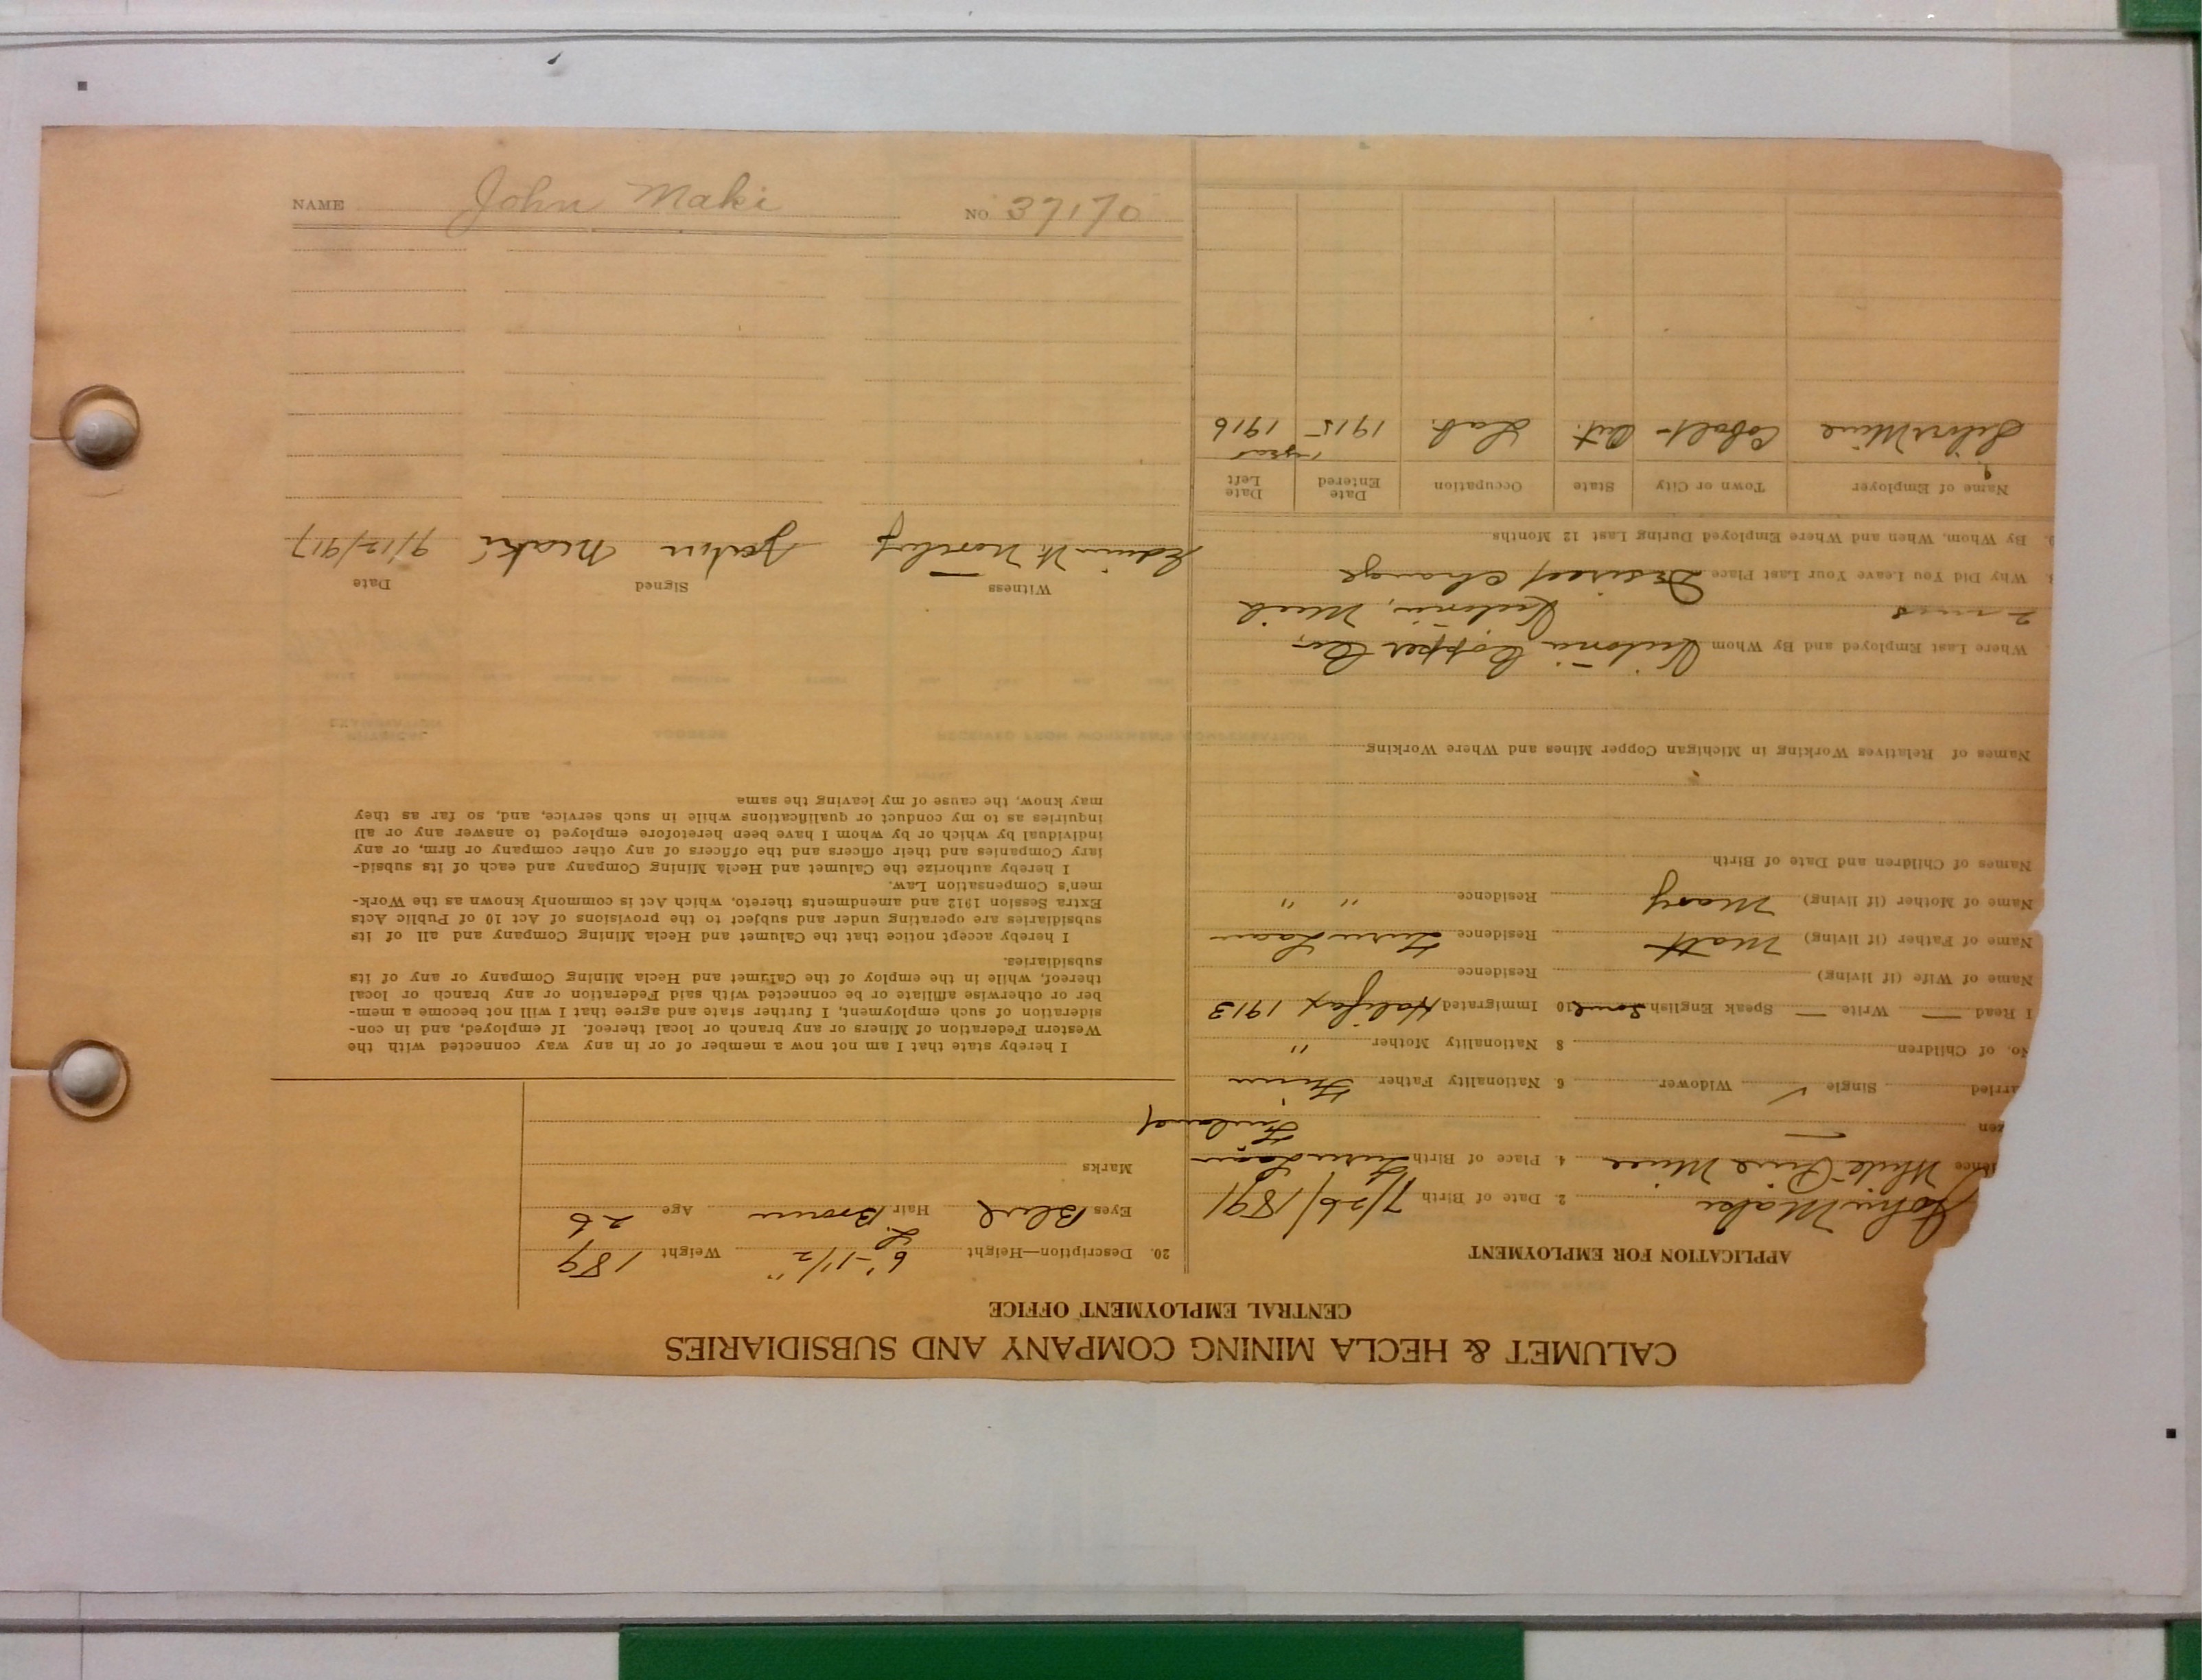 CALUMET & HECLA MINING COMPANY AND SUBSIDIARIES
CENTRAL EMPLOYMENT OFFICE
APPLICATION FOR EMPLOYMENT
John Maki 2. Date of Birth 7/26/1891
White Pine Mine 4. Place of Birth
Finland
arried Single ✓ Widower 6 Nationality Father Finn
No. of Children 8 Nationality Mother "
I Read — Write — Speak English Some 10 Immigrated Halifax 1913
Name of Wife (if living) Residence
Name of Father (if living) Matt Residence
Name of Mother (if living) Mary Residence " "
Names of Children and Date of Birth
Names of Relatives Working in Michigan Copper Mines and Where Working
Where Last Employed and By Whom Victoria Copper Co.
2 mos Victoria, Mich
Why Did You Leave Your Last Place Desired change
9. By Whom, When and Where Employed During Last 12 Months
Name of Employer Town or City State Occupation Date Entered Date Left
1 year
Silver Mine Cobalt Ont. Lab. 1915 1916
20. Description—Height 6'-1 1/2" Weight 189
Eyes Blue Hair L. Brown Age 26
Marks
I hereby state that I am not now a member of or in any way connected with the
Western Federation of Miners or any branch or local thereof. If employed, and in con-
sideration of such employment, I further state and agree that I will not become a mem-
ber or otherwise affiliate or be connected with said Federation or any branch or local
thereof, while in the employ of the Calumet and Hecla Mining Company or any of its
subsidiaries.
I hereby accept notice that the Calumet and Hecla Mining Company and all of its
subsidiaries are operating under and subject to the provisions of Act 10 of Public Acts
Extra Session 1912 and amendments thereto, which Act is commonly known as the Work-
men's Compensation Law.
I hereby authorize the Calumet and Hecla Mining Company and each of its subsid-
iary Companies and their officers and the officers of any other company or firm, or any
individual by which or by whom I have been heretofore employed to answer any or all
inquiries as to my conduct or qualifications while in such service, and, so far as they
may know, the cause of my leaving the same
Witness Signed Date
Edwin W. John Maki 9/12/917
NAME John Maki NO 37170